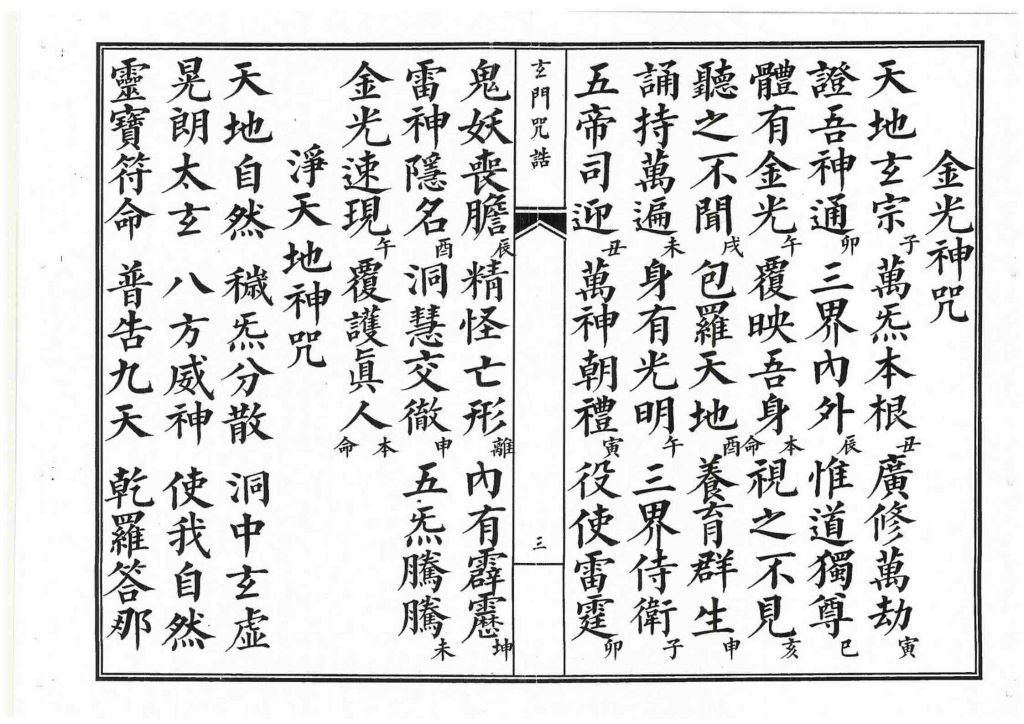 金光神咒
天地玄宗子 萬炁本根丑 廣修萬劫寅
證吾神通卯 三界內外辰 惟道獨尊巳
體有金光午 覆映吾身本命 視之不見亥
聽之不聞戌 包羅天地酉 養育群生申
誦持萬遍未 身有光明午 三界侍衛子
五帝司迎丑 萬神朝禮寅 役使雷霆卯
玄門咒誥
三
鬼妖喪膽辰 精怪亡形離 內有霹靂坤
雷神隱名酉 洞慧交徹申 五炁騰騰未
金光速現午 覆護眞人本命
淨天地神咒
天地自然 穢炁分散 洞中玄虛
晃朗太玄 八方威神 使我自然
靈寶符命 普告九天 乾羅答那